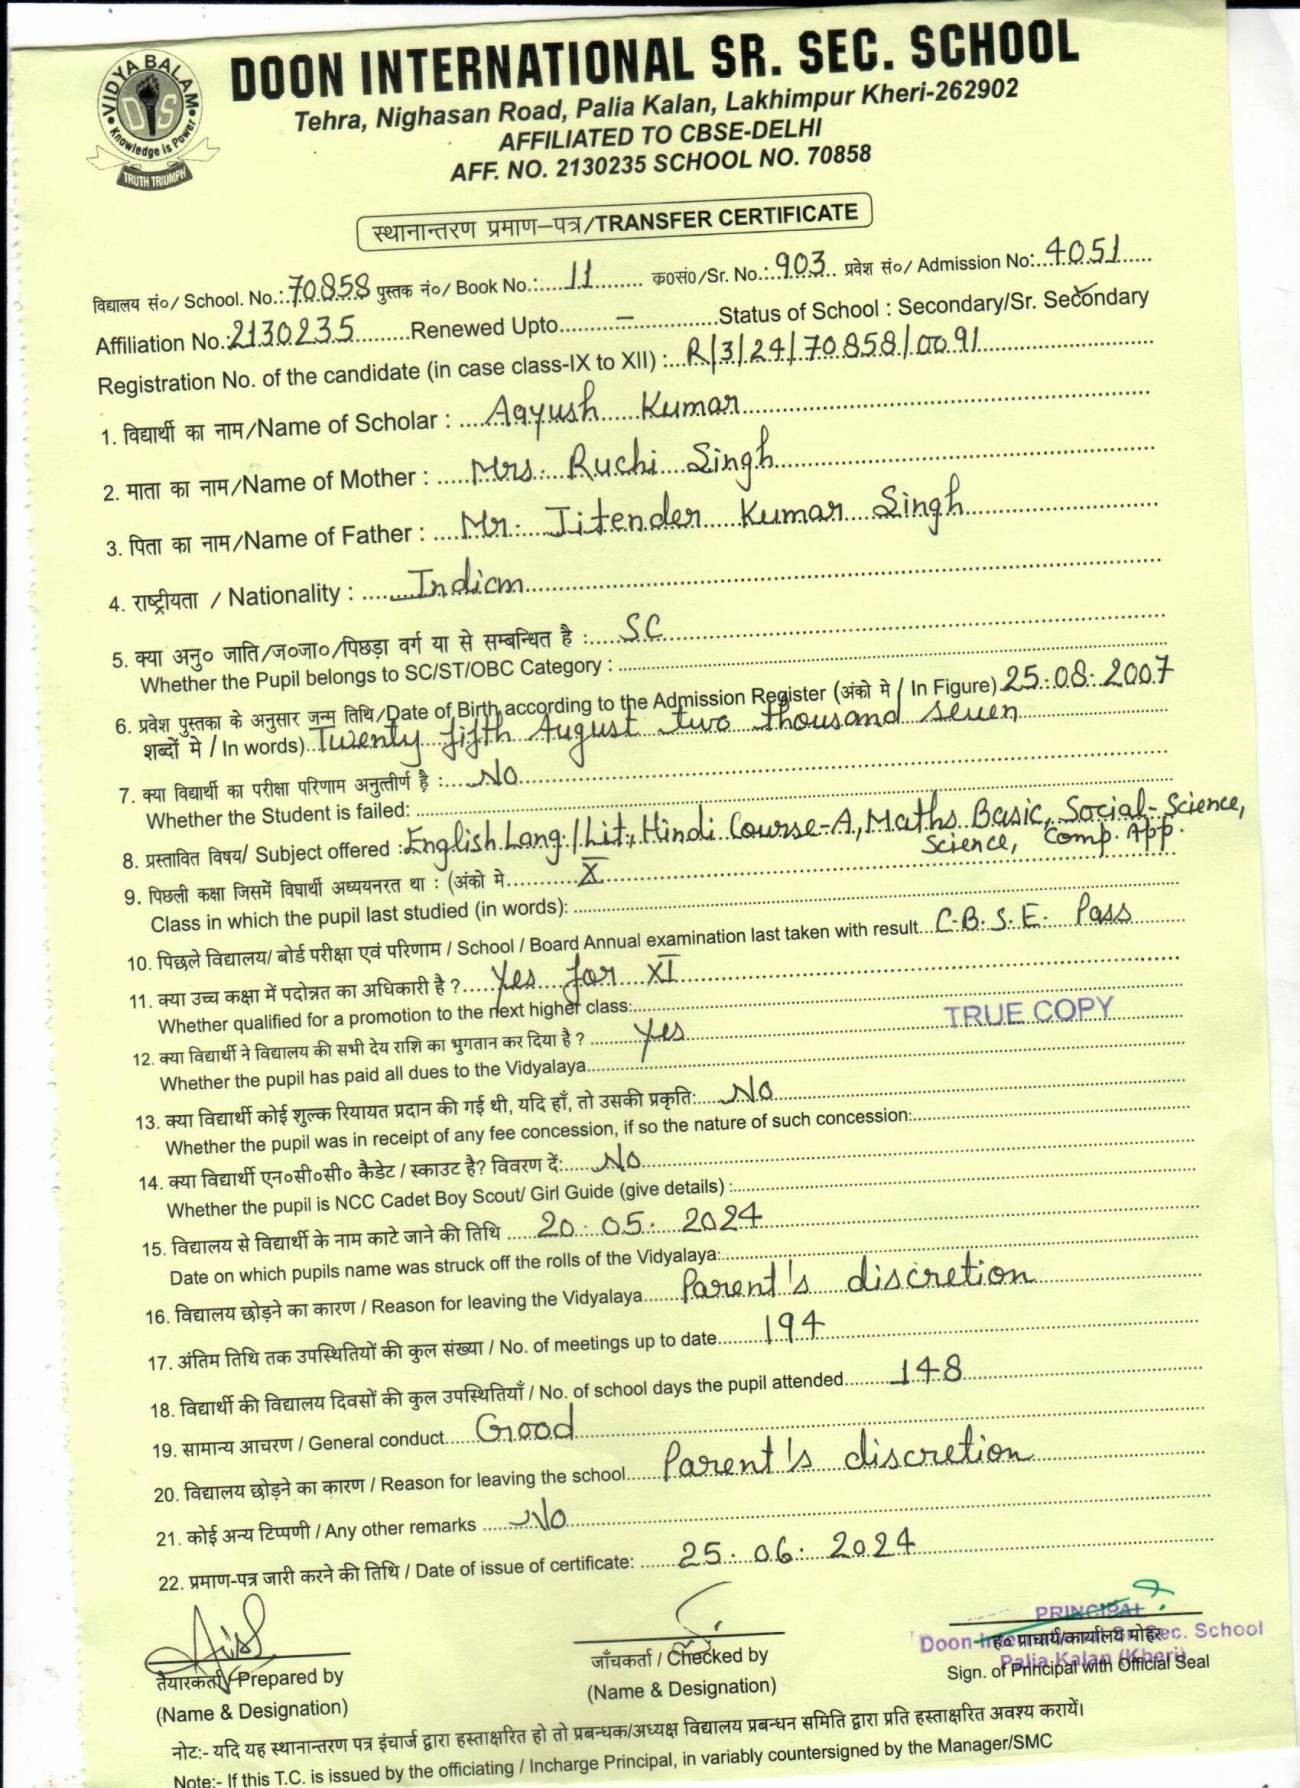 VIDYA BALAM
DIS
Knowledge is Power
TRUTH TRIUMPH
DOON INTERNATIONAL SR. SEC. SCHOOL
Tehra, Nighasan Road, Palia Kalan, Lakhimpur Kheri-262902
AFFILIATED TO CBSE-DELHI
AFF. NO. 2130235 SCHOOL NO. 70858
स्थानान्तरण प्रमाण–पत्र/TRANSFER CERTIFICATE
विद्यालय सं०/ School. No.:.70858 पुस्तक नं०/ Book No.:.....11......... क०सं०/Sr. No.:.903... प्रवेश सं०/ Admission No:..4051......
Affiliation No.:2130235.........Renewed Upto.........–.............Status of School : Secondary/Sr. Secondary
Registration No. of the candidate (in case class-IX to XII) :...R/3/24/70858/0091
1. विद्यार्थी का नाम/Name of Scholar : ....Aayush Kumar
2. माता का नाम/Name of Mother : .....Mrs. Ruchi Singh
3. पिता का नाम/Name of Father : ....Mr. Jitender Kumar Singh
4. राष्ट्रीयता / Nationality : ......Indian
5. क्या अनु० जाति/ज०जा०/पिछड़ा वर्ग या से सम्बन्धित है :.....SC
Whether the Pupil belongs to SC/ST/OBC Category :
6. प्रवेश पुस्तका के अनुसार जन्म तिथि/Date of Birth according to the Admission Register (अंको मे / In Figure) 25.08.2007
शब्दों मे / In words)..Twenty fifth August two thousand seven
7. क्या विद्यार्थी का परीक्षा परिणाम अनुत्तीर्ण है :....No
Whether the Student is failed:
8. प्रस्तावित विषय/ Subject offered :English Lang./Lit, Hindi Course-A, Maths Basic, Social-Science,
Science, Comp. App.
9. पिछली कक्षा जिसमें विघार्थी अध्ययनरत था : (अंको मे...........X
Class in which the pupil last studied (in words):
10. पिछले विद्यालय/ बोर्ड परीक्षा एवं परिणाम / School / Board Annual examination last taken with result...C.B.S.E. Pass
11. क्या उच्च कक्षा में पदोन्नत का अधिकारी है ?.....Yes for XI
Whether qualified for a promotion to the next higher class:
TRUE COPY
12. क्या विद्यार्थी ने विद्यालय की सभी देय राशि का भुगतान कर दिया है ? ........Yes
Whether the pupil has paid all dues to the Vidyalaya
13. क्या विद्यार्थी कोई शुल्क रियायत प्रदान की गई थी, यदि हाँ, तो उसकी प्रकृति:.....No
Whether the pupil was in receipt of any fee concession, if so the nature of such concession:
14. क्या विद्यार्थी एन०सी०सी० कैडेट / स्काउट है? विवरण दें:.....No
Whether the pupil is NCC Cadet Boy Scout/ Girl Guide (give details) :
15. विद्यालय से विद्यार्थी के नाम काटे जाने की तिथि .....20.05.2024
Date on which pupils name was struck off the rolls of the Vidyalaya:
16. विद्यालय छोड़ने का कारण / Reason for leaving the Vidyalaya......Parent's discretion
17. अंतिम तिथि तक उपस्थितियों की कुल संख्या / No. of meetings up to date.......194
18. विद्यार्थी की विद्यालय दिवसों की कुल उपस्थितियाँ / No. of school days the pupil attended.......148
19. सामान्य आचरण / General conduct.....Good
20. विद्यालय छोड़ने का कारण / Reason for leaving the school......Parent's discretion
21. कोई अन्य टिप्पणी / Any other remarks .....No
22. प्रमाण-पत्र जारी करने की तिथि / Date of issue of certificate: ......25.06.2024
PRINCIPAL
Doon International Sr. Sec. School
Palia Kalan (Kheri)
तैयारकर्ता / Prepared by
(Name & Designation)
जाँचकर्ता / Checked by
(Name & Designation)
ह० प्राचार्य/कार्यालय मोहर
Sign. of Principal with Official Seal
नोटः- यदि यह स्थानान्तरण पत्र इंचार्ज द्वारा हस्ताक्षरित हो तो प्रबन्धक/अध्यक्ष विद्यालय प्रबन्धन समिति द्वारा प्रति हस्ताक्षरित अवश्य करायें।
Note:- If this T.C. is issued by the officiating / Incharge Principal, in variably countersigned by the Manager/SMC